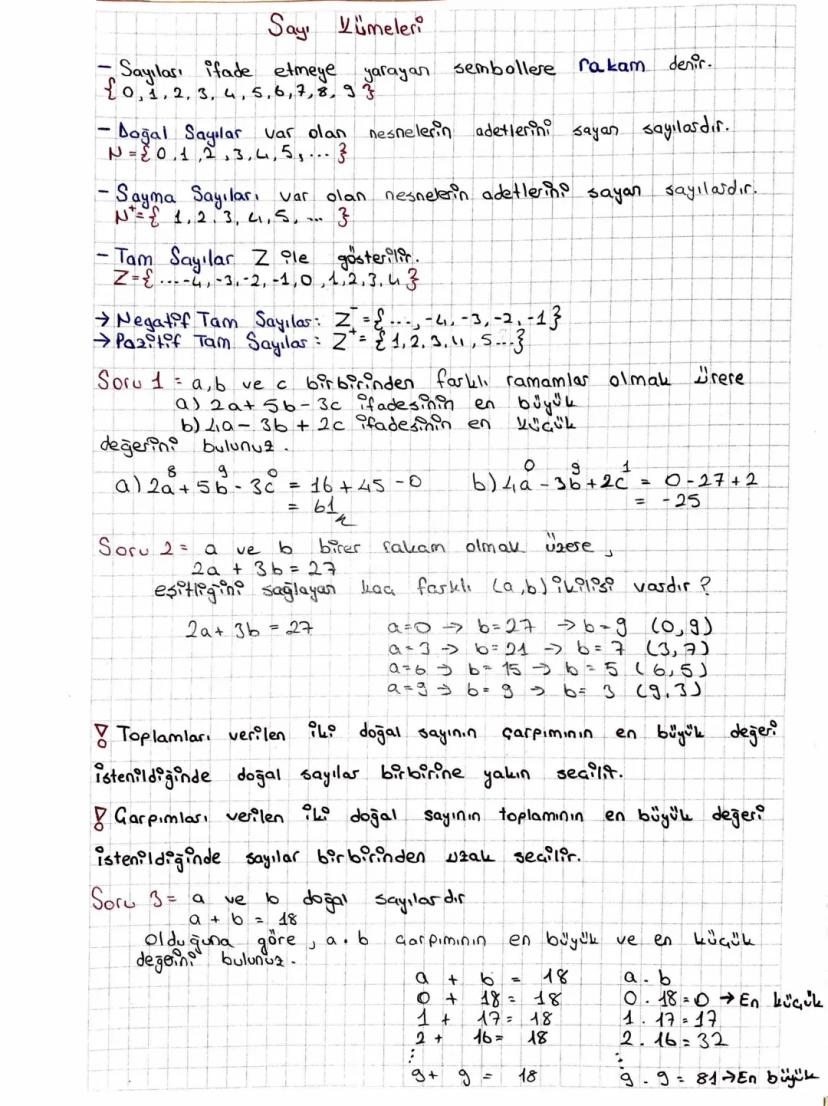 Sayı Kümeleri
- Sayıları ifade etmeye yarayan sembollere rakam denir.
{0,1,2,3,4,5,6,7,8,9}
- Doğal Sayılar var olan nesnelerin adetlerini sayan sayılardır.
N={0,1,2,3,4,5,...}
- Sayma Sayıları var olan nesnelerin adetlerini sayan sayılardır.
N⁺={1,2,3,4,5,...}
- Tam Sayılar Z ile gösterilir.
Z={...-4,-3,-2,-1,0,1,2,3,4}
→ Negatif Tam Sayılar: Z⁻={...,-4,-3,-2,-1}
→ Pozitif Tam Sayılar: Z⁺={1,2,3,4,5...}
Soru 1= a,b ve c birbirinden farklı ramamlar olmak üzere
a) 2a+5b-3c ifadesinin en büyük
b) 4a-3b+2c ifadesinin en küçük
değerini bulunuz.
8 9 0 0 9 1
a) 2a+5b-3c = 16+45-0 b) 4a-3b+2c = 0-27+2
= 61 = -25
Soru 2= a ve b birer rakam olmak üzere,
2a + 3b = 27
eşitliğini sağlayan kaç farklı (a,b) ikilisi vardır?
2a+3b=27 a=0 → b=27 → b=9 (0,9)
a=3 → b=21 → b=7 (3,7)
a=6 → b=15 → b=5 (6,5)
a=9 → b=9 → b=3 (9,3)
! Toplamları verilen iki doğal sayının çarpımının en büyük değeri
istenildiğinde doğal sayılar birbirine yakın seçilir.
! Çarpımları verilen iki doğal sayının toplamının en büyük değeri
istenildiğinde sayılar birbirinden uzak seçilir.
Soru 3= a ve b doğal sayılardır
a + b = 18
Olduğuna göre, a.b çarpımının en büyük ve en küçük
değerini bulunuz.
a + b = 18 a.b
0 + 18 = 18 0.18=0 → En küçük
1 + 17 = 18 1.17=17
2 + 16 = 18 2.16=32
⋮ ⋮
9+ 9 = 18 9.9=81→En büyük